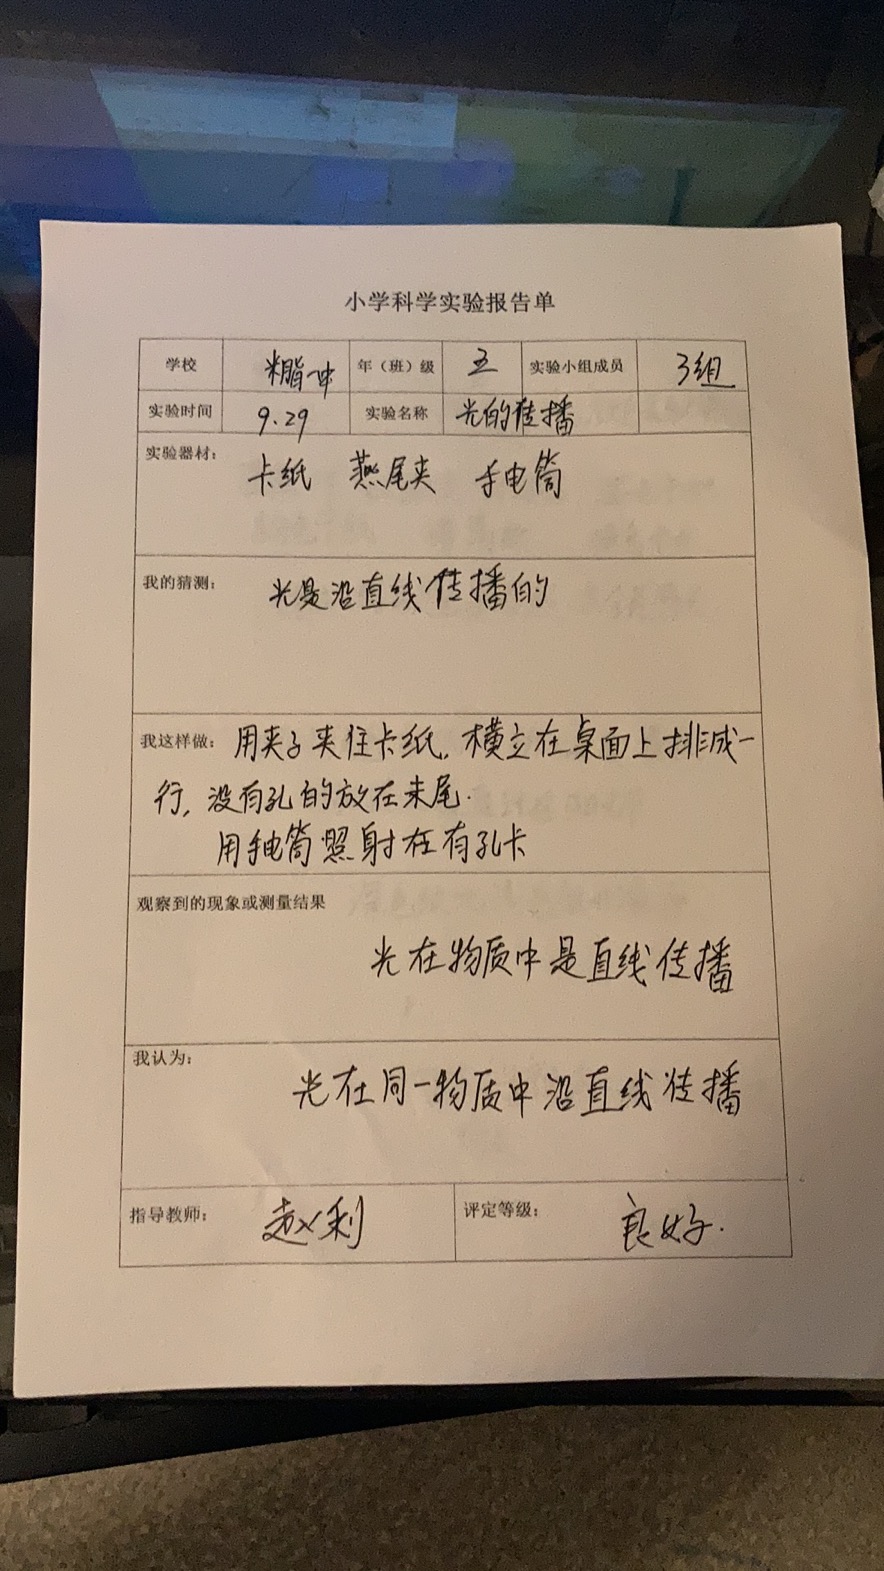 小学科学实验报告单
学校 米脂一中 年（班）级 五 实验小组成员 3组
实验时间 9.29 实验名称 光的传播
实验器材： 卡纸 燕尾夹 手电筒
我的猜测： 光是沿直线传播的
我这样做： 用夹子夹住卡纸，横立在桌面上排成一
行，没有孔的放在末尾.
用手电筒照射在有孔卡
观察到的现象或测量结果
光在物质中是直线传播
我认为：
光在同一物质中沿直线传播
指导教师： 赵利 评定等级： 良好.